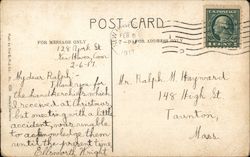 POST CARD
FOR MESSAGE ONLY
FOR ADDRESS ONLY
128 York St
New Haven, Conn
2-6-17
My dear Ralph:-
Thank you for
the handkerchief which
I received at Christmas,
but meeting with a little
accident, was unable
to acknowledge them
until the present time
Ellsworth Wright
FEB 6
1917
Mr. Ralph M Hayward
148 High St
Taunton,
Mass.